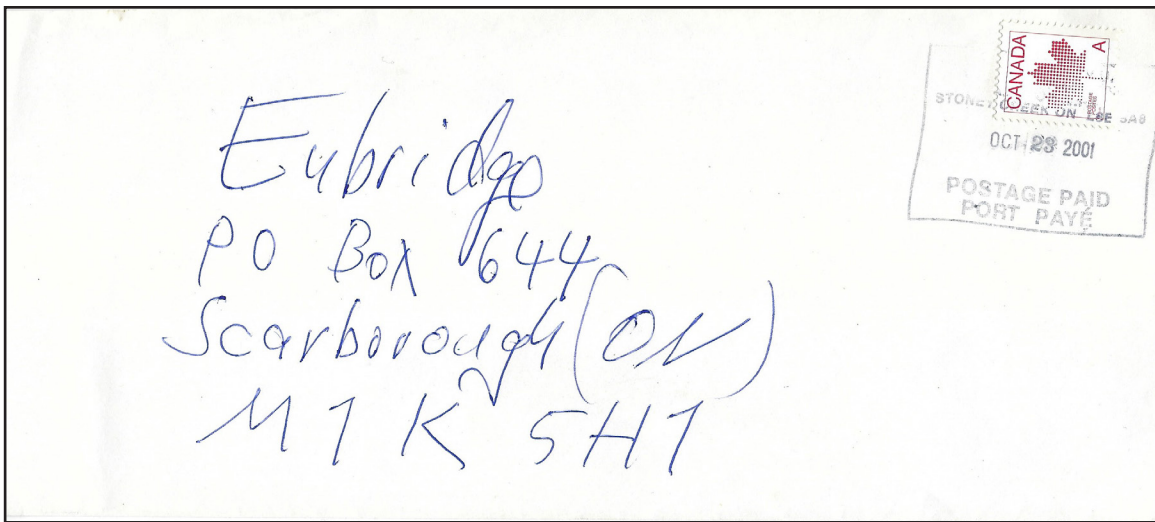 CANADA
A
STONEY CREEK ON
OCT 2001
POSTAGE PAID
PORT PAYÉ
Eubridge
PO Box 644
Scarborough (ON)
M1K 5H1